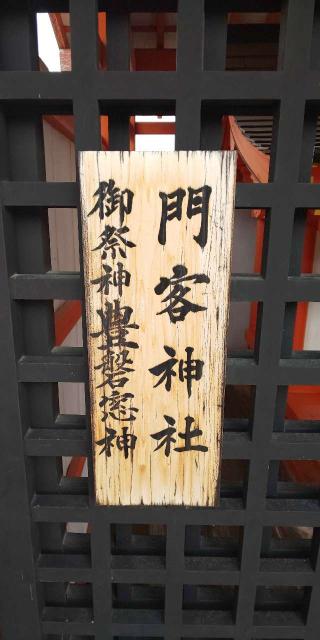 門客神社
御祭神豊磐窓神